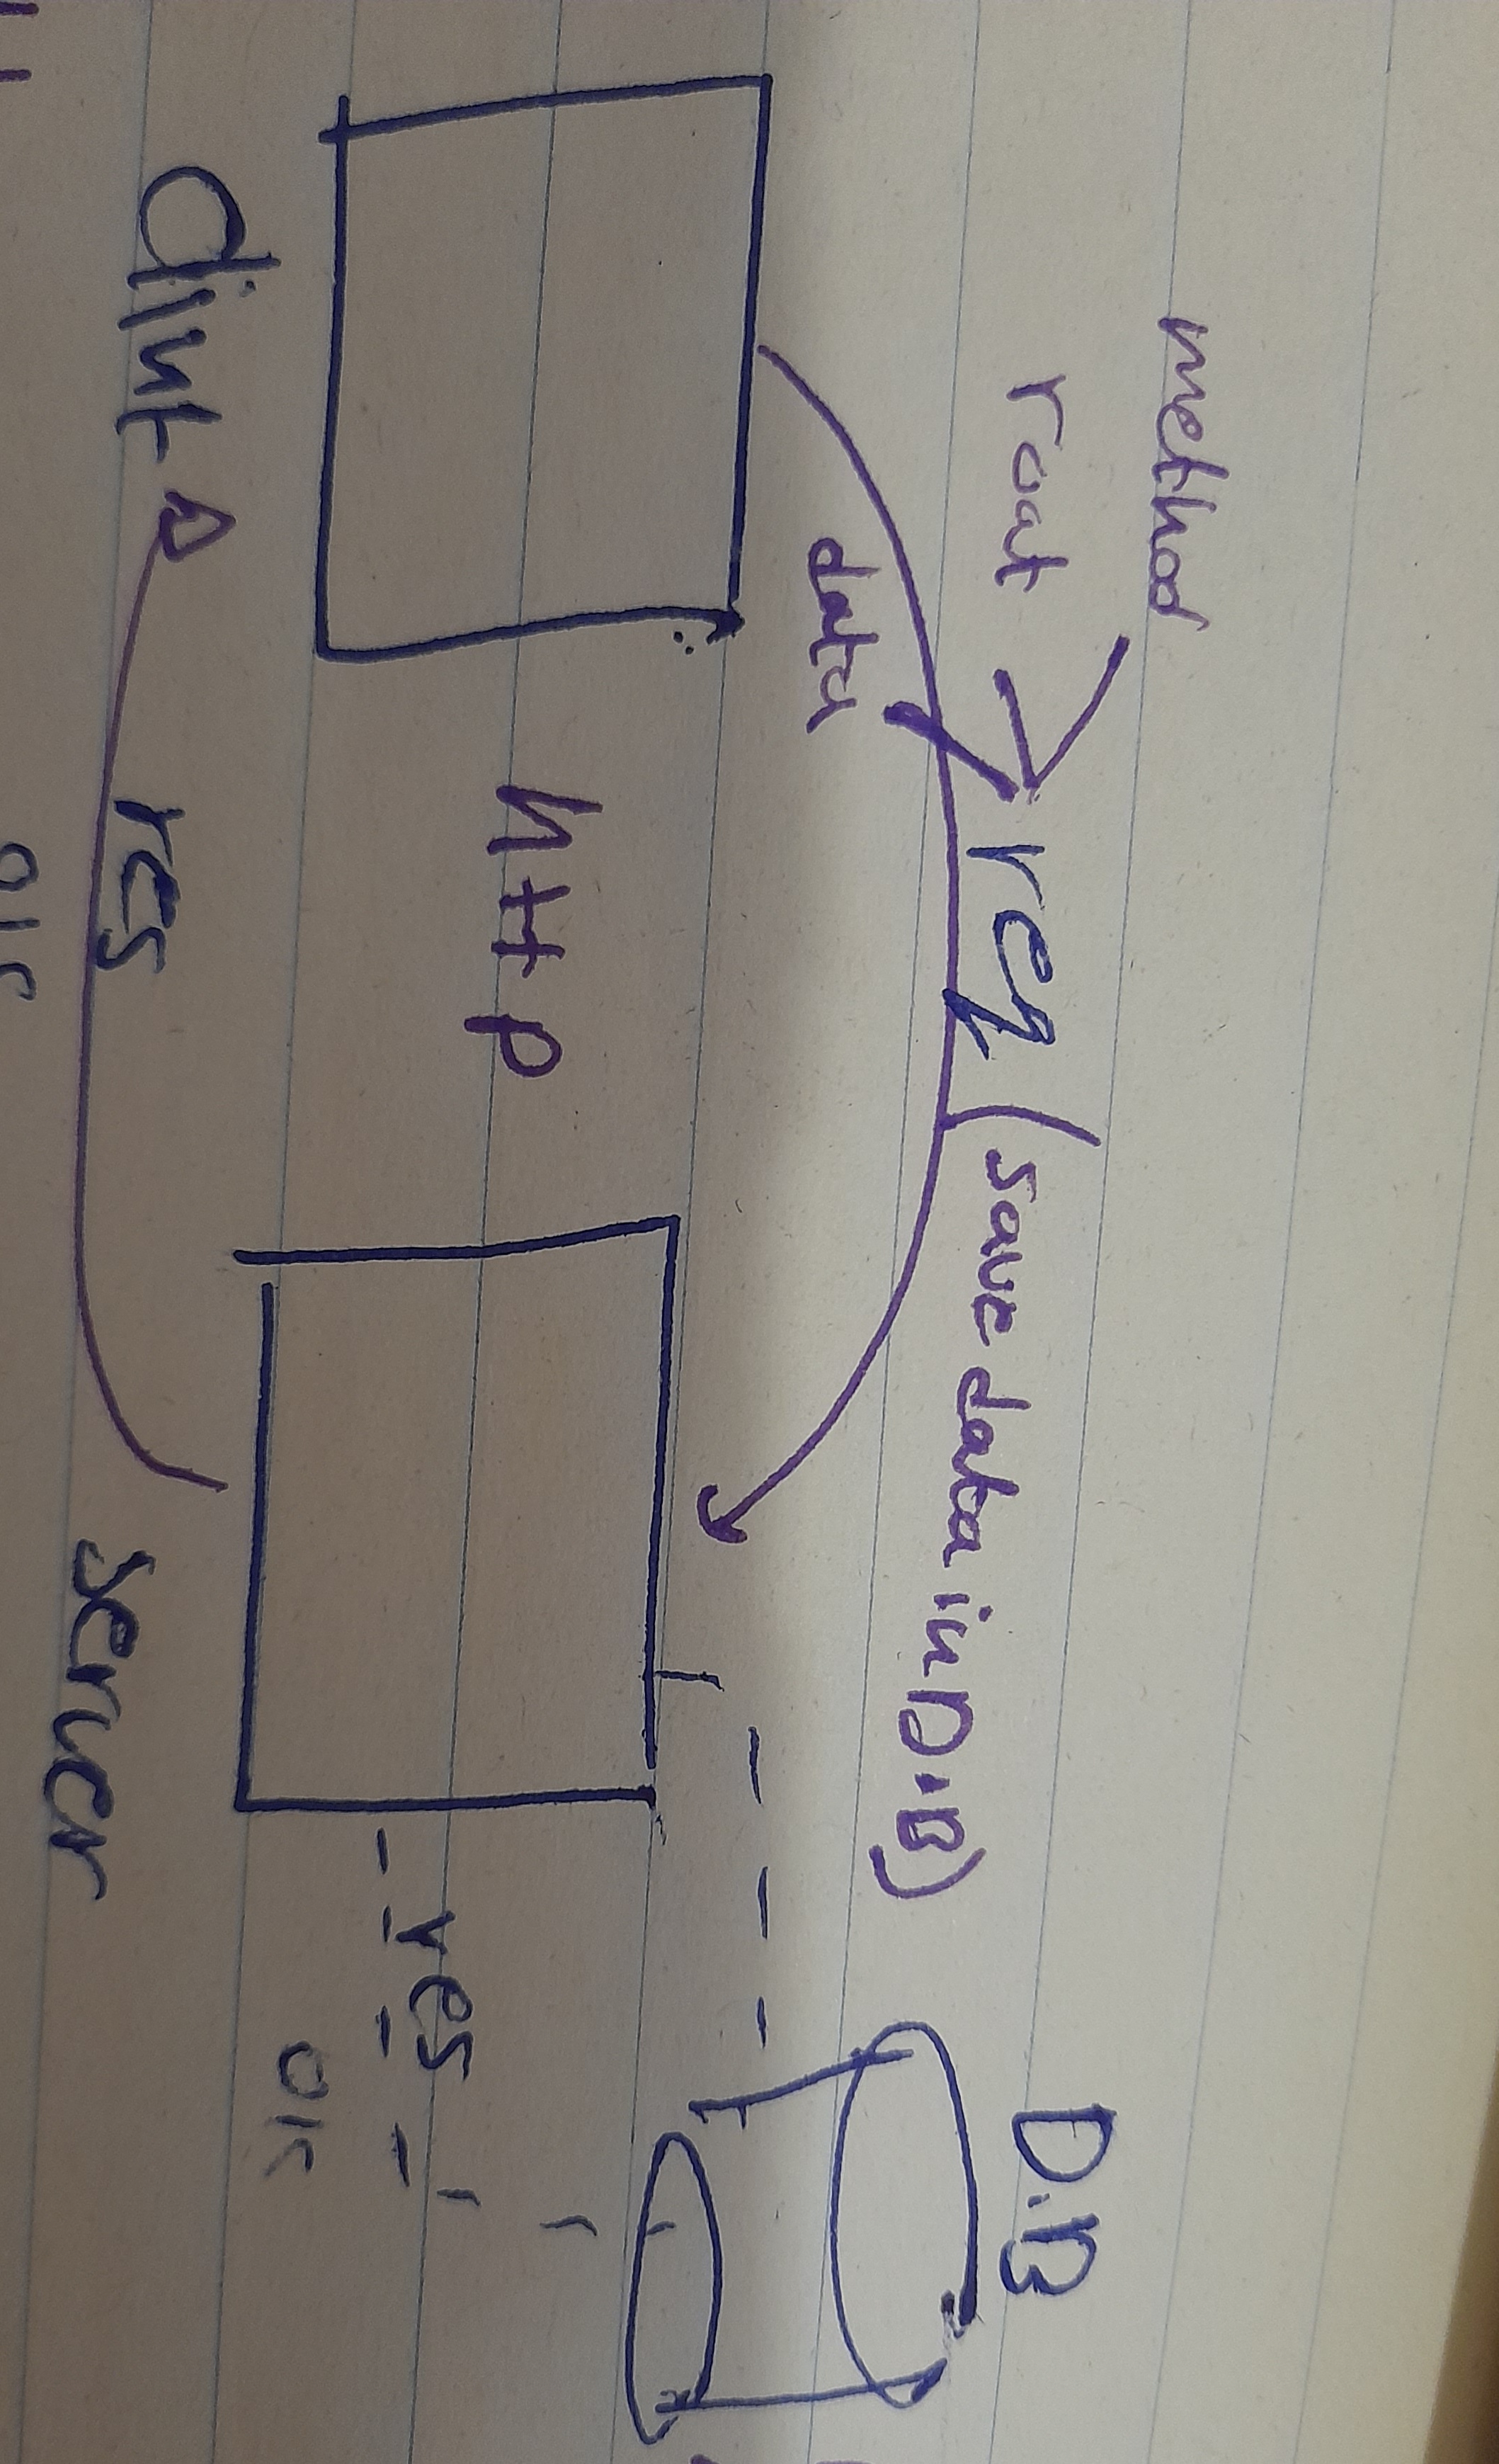 method
D.B
roat req (save data in D.B)
data
http
res
OK
clint res server
OK